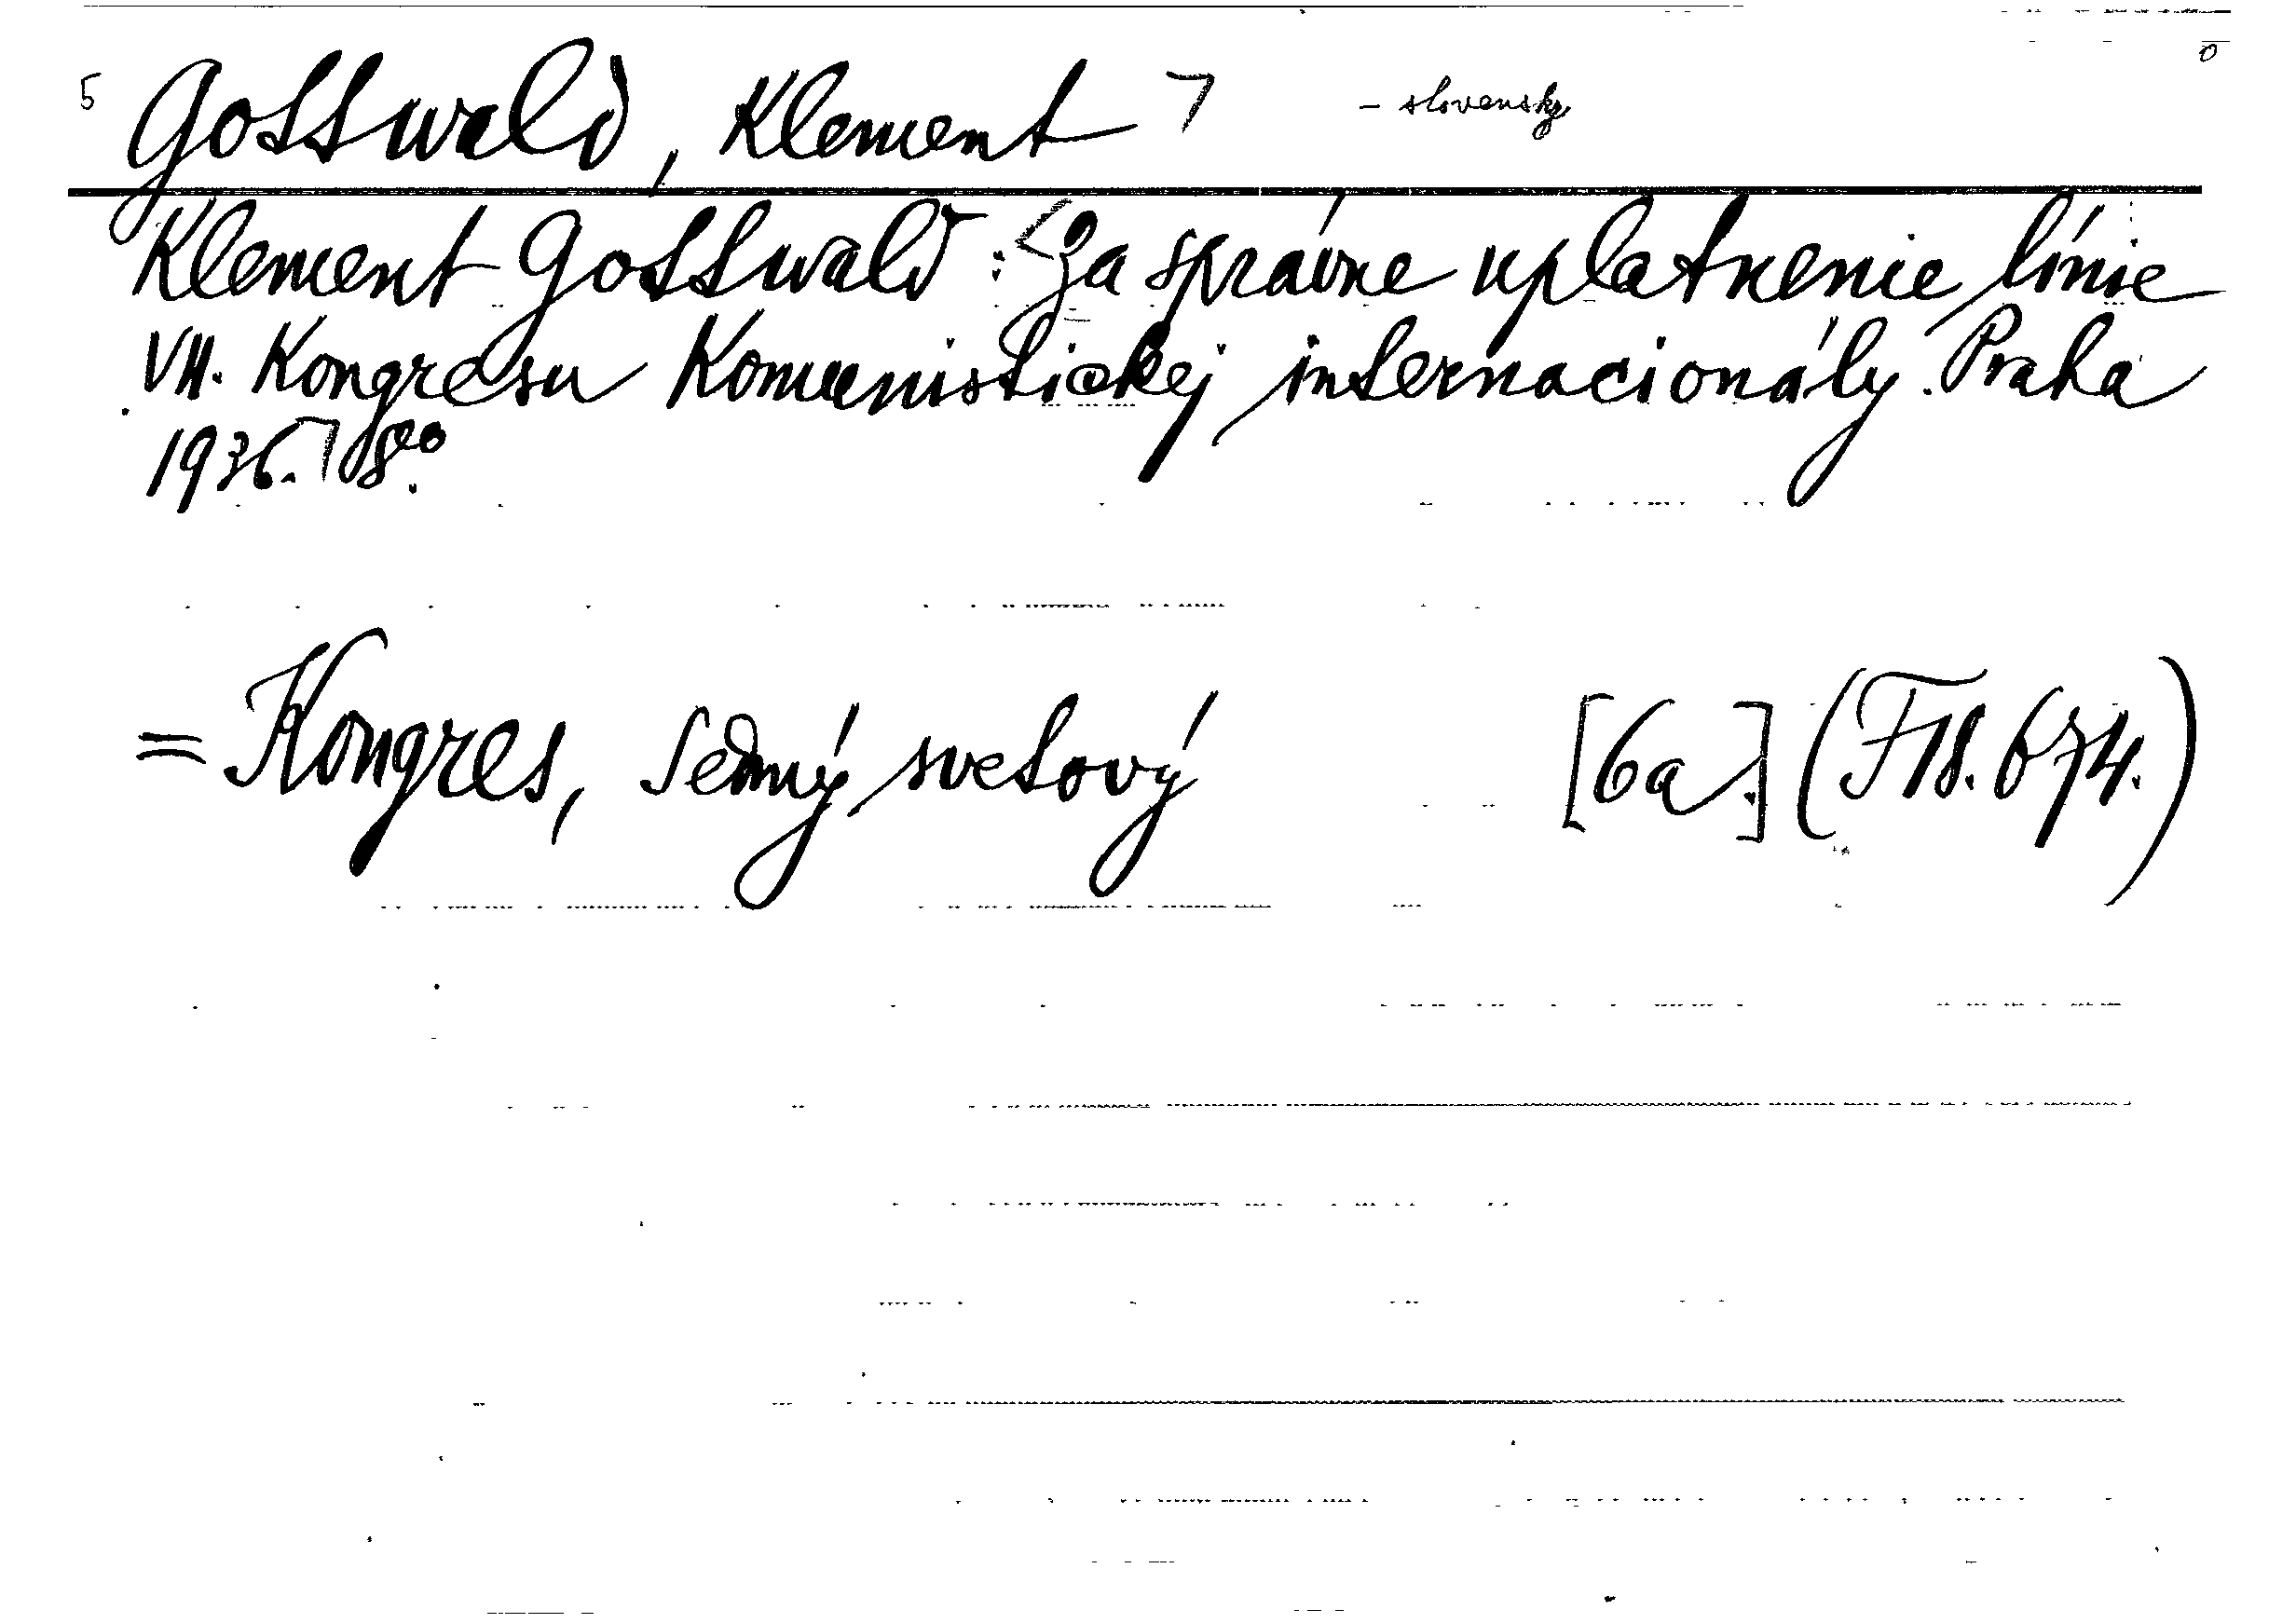 5 Gottwald, Klement ⌝ - slovensky
Klement Gottwald: <Za správne uplatnenie línie
VII. Kongresu Komunistickej internacionály. Praha
1936.⌝ 8°.
= Kongres, Sedmý svetový [6a.] (F 18.674.)